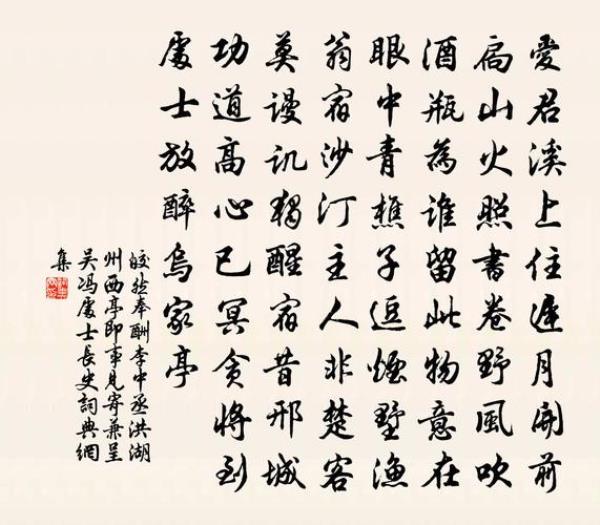 愛君溪上住遲月開前
扃山火照書卷野風吹
酒瓶為誰留此物意在
眼中青樵子逗煙墅漁
翁宿沙汀主人非楚客
莫谩讥獨醒宿昔邢城
功道高心已冥貪將到
處士放醉烏家亭
皎然奉酬李中丞洪湖
州西亭即事見寄兼呈
吳馮處士長史詞典網
集